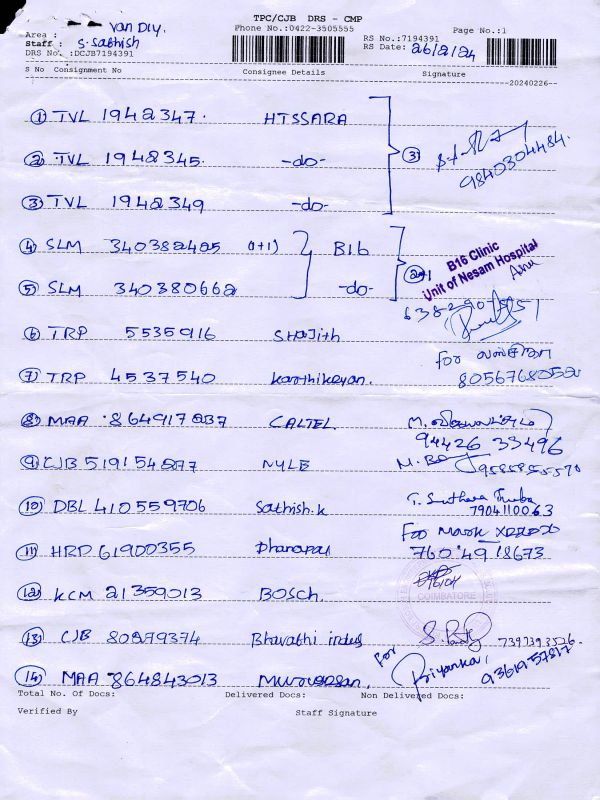 TPC/CJB DRS - CMP
Van DLy.
Area :
Phone No.:0422-3505555
RS No.:7194391
Page No.:1
Staff : S. Sathish
RS Date: 26/2/24
DRS No. :DCJB7194391
S No Consignment No Consignee Details Signature
20240226
1 TVL 1942347. HTSSARA
2 TVL 1942345. -do- 3
9840304484.
3 TVL 1942349 -do-
4 SLM 340382425 (1+1) B16
B16 Clinic
Unit of Nesam Hospital
5 SLM 340380662 -do-
6 TRP 5535916 Shajith
for
7 TRP 4537540 Karthikeyan. 8056768052
8 MAA 864917237 CALTEL
94426 33496
9 CJB 519154277 NYLE
10 DBL 410559706 Sathish.k
7904110063
For Mark
11 HRP 61900355 Dhanapal 760 49 18673
12 KCM 21359013 BOSCH
COIMBATORE
13 CJB 80279374 Bharathi indus
for
14 MAA 864843013 Murugesan, Priyanka,
Total No. Of Docs: Delivered Docs: Non Delivered Docs:
Verified By Staff Signature